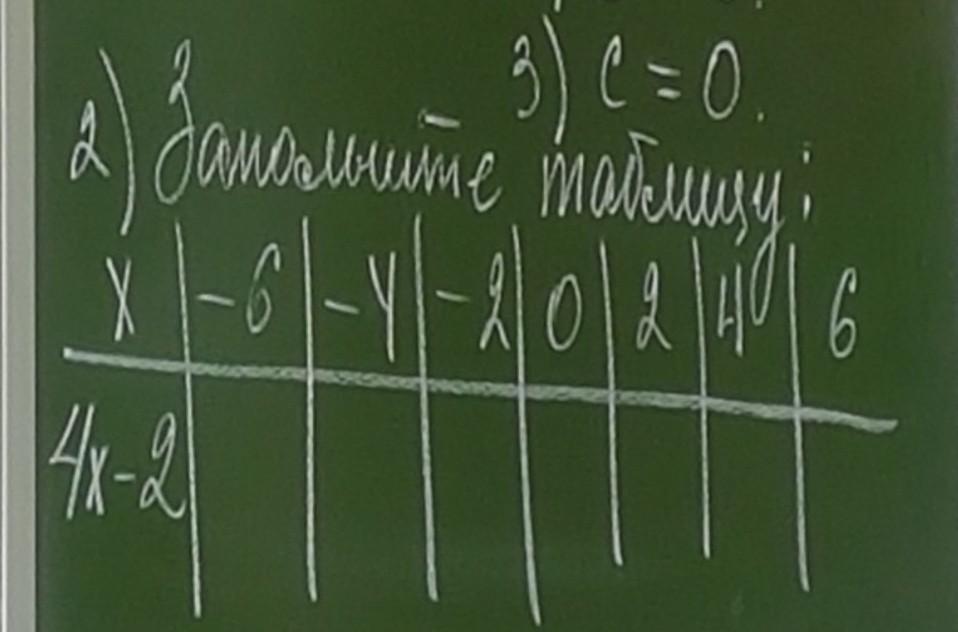 3) c = 0.
2) Заполните таблицу:
x | -6 | -4 | -2 | 0 | 2 | 4 | 6
4x-2